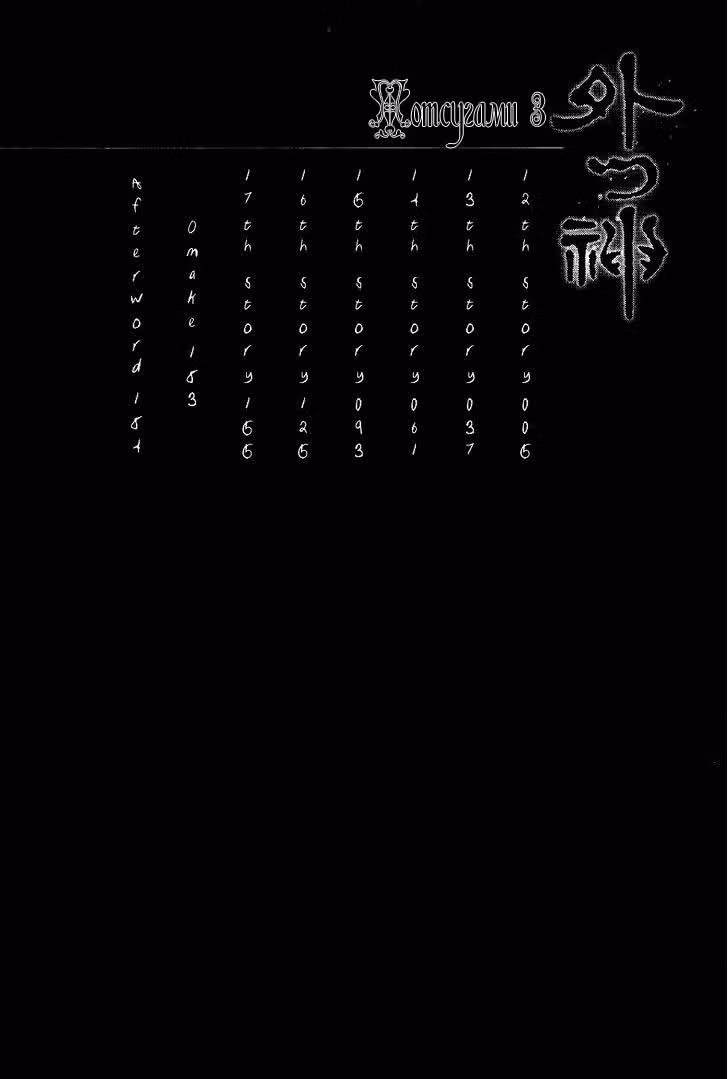 外つ神
Тотсугами 3
12th story 005
13th story 037
14th story 061
15th story 093
16th story 125
17th story 155
Omake 183
Afterword 184